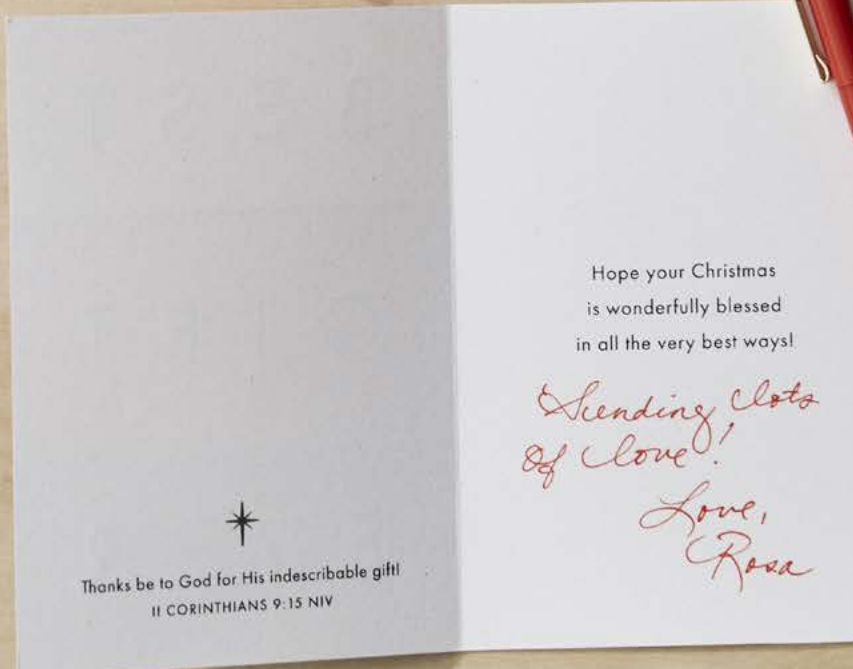 Thanks be to God for His indescribable gift!
II CORINTHIANS 9:15 NIV
Hope your Christmas
is wonderfully blessed
in all the very best ways!
Sending Lots
Of Love!
Love,
Rosa